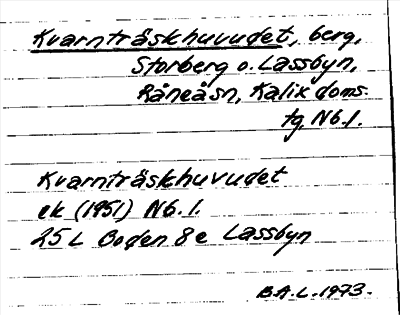 Kvarnträskhuvudet, berg,
Storberg o. Lassbyn,
Råneåsn, Kalix doms.
tg. Nb.l.
Kvarnträskhuvudet
ek (1951) Nb.l.
25 L Boden 8 e Lassbyn
B.A.L. 1973.